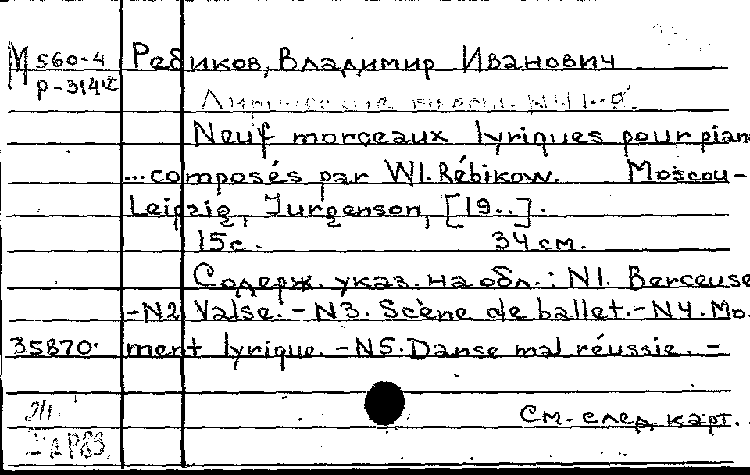 М 560-4 Ребиков, Владимир Иванович
р-314
Neuf morceaux lyriques pour pian
...composés par Wl. Rébikow. Moscou-
Leipzig, Jurgenson, [19..].
15с. 34 см.
Содерж. указ. на обл.: N1. Berceuse
-N2. Valse. -N3. Scène de ballet. -N4. Mo
35870. ment lyrique. -N5. Danse mal réussie. -
См. след. карт.